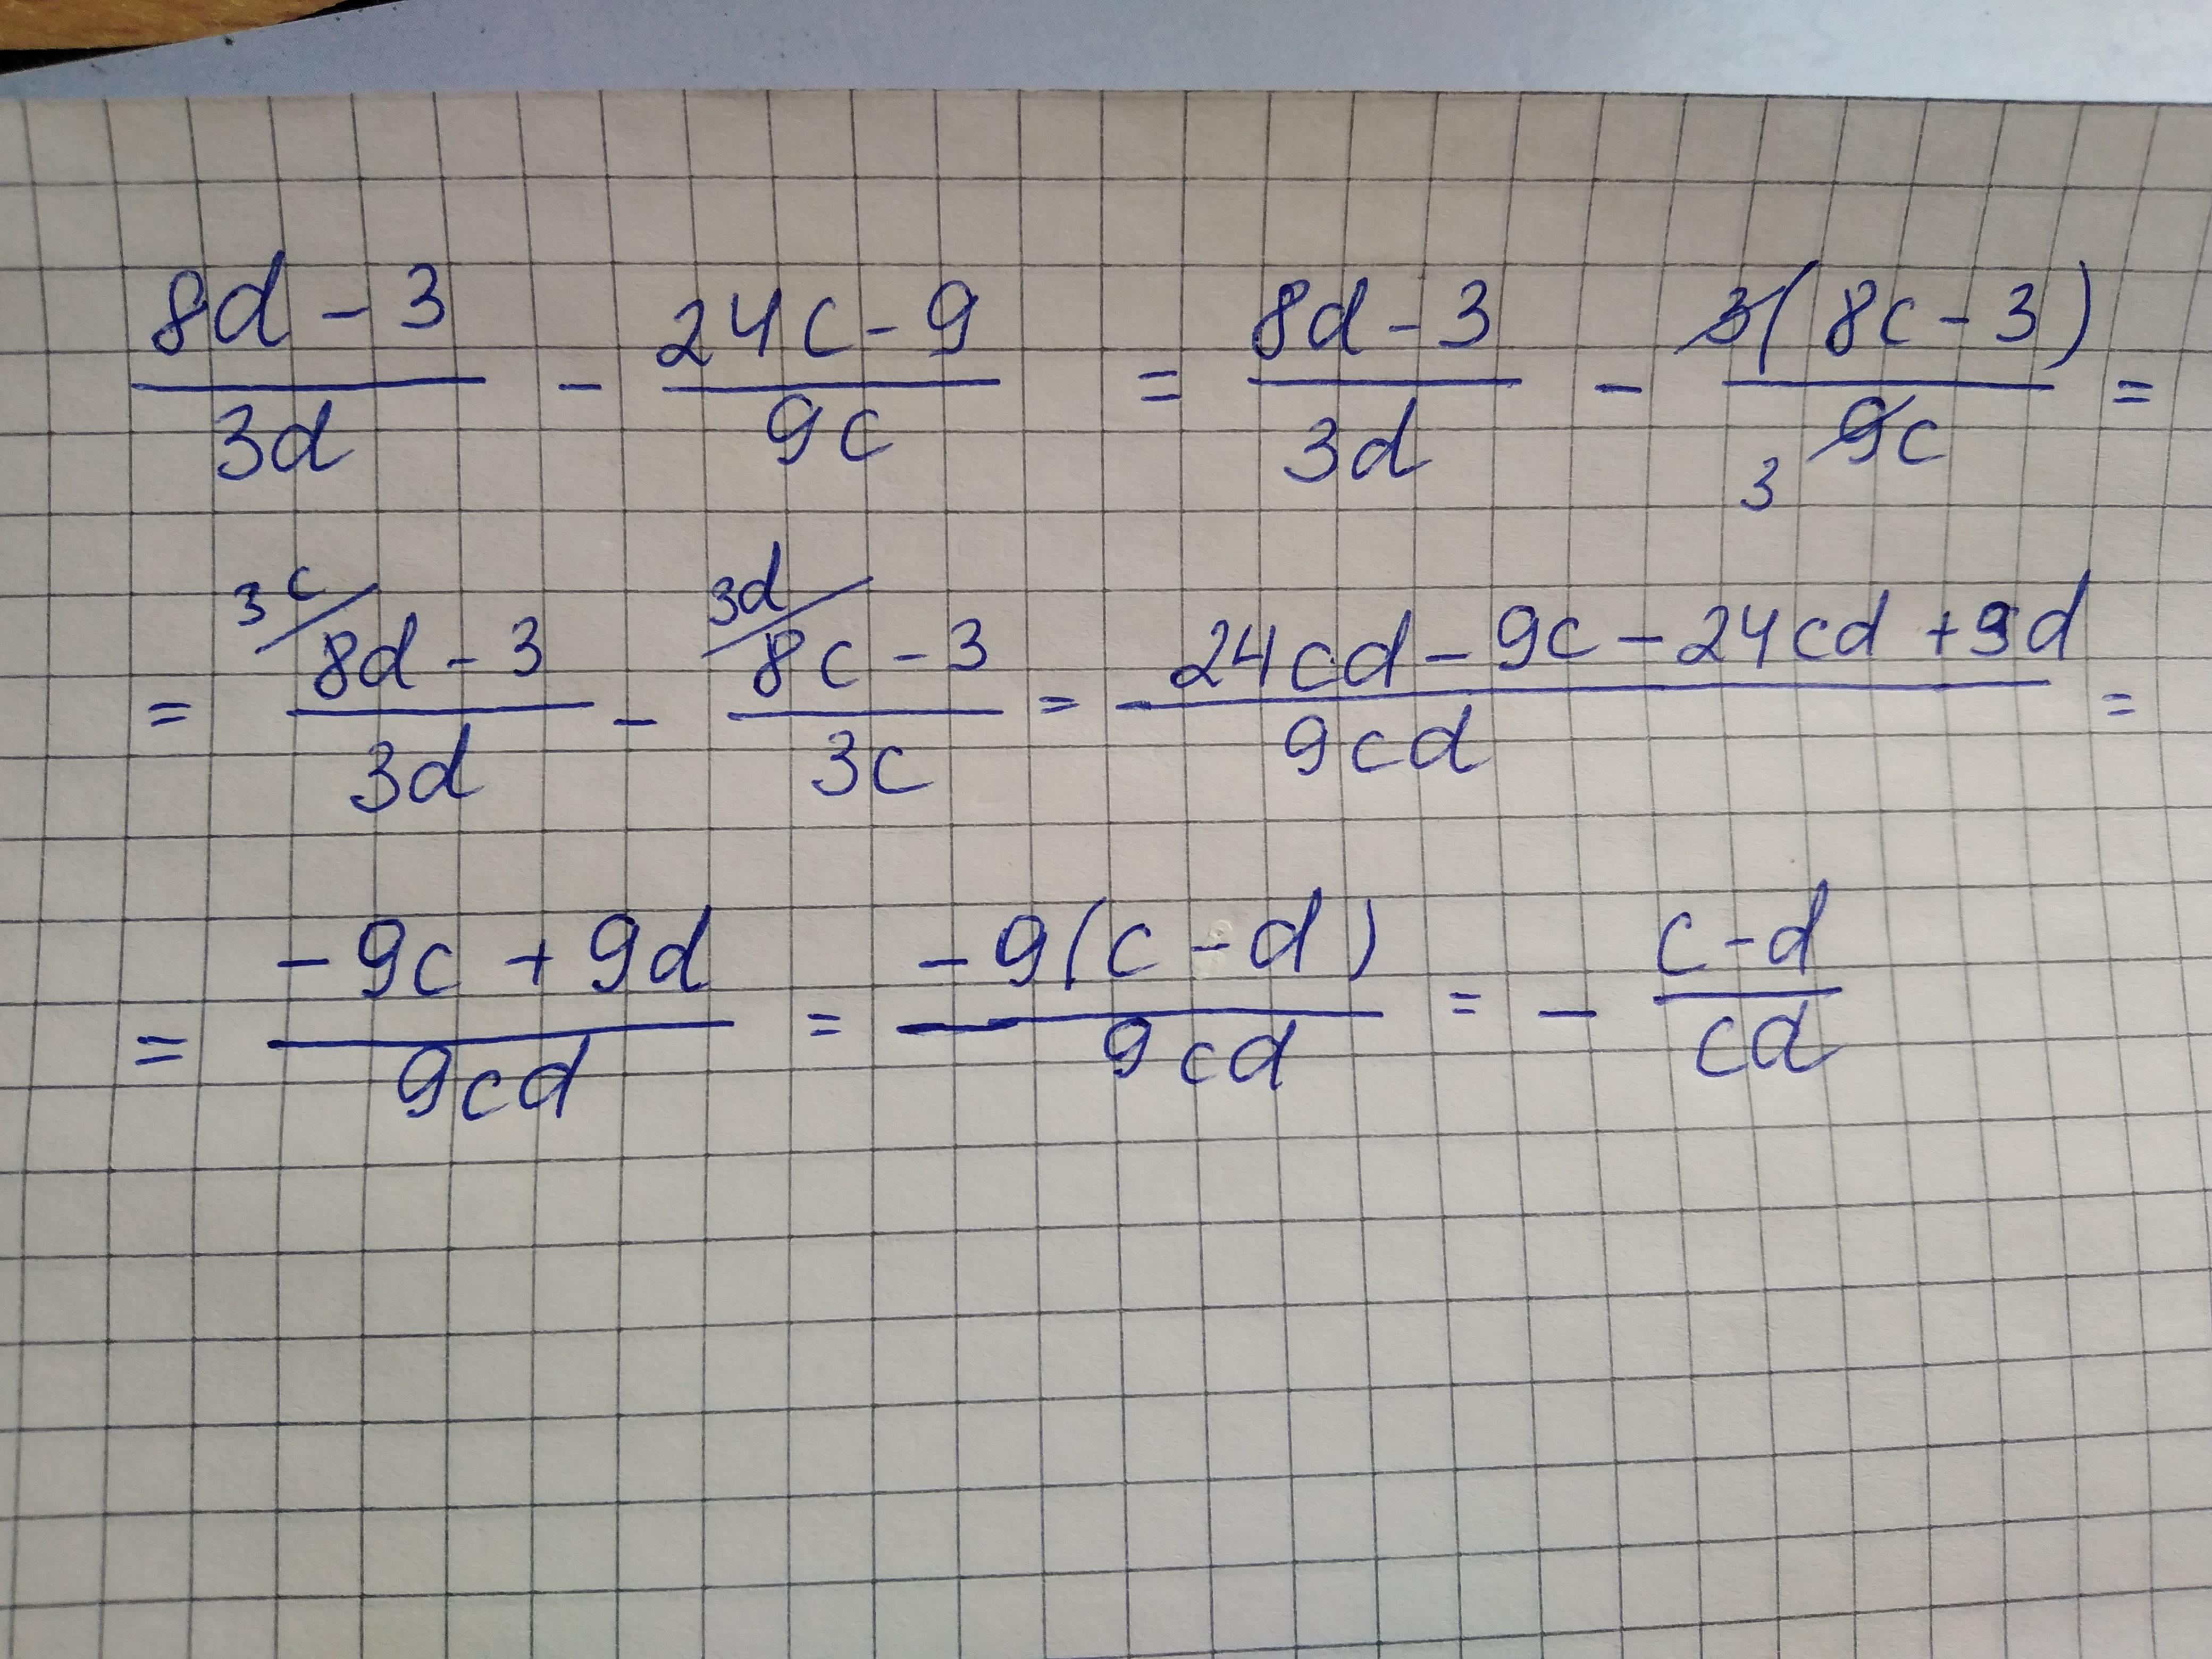 (8d - 3)/(3d) - (24c - 9)/(9c) = (8d - 3)/(3d) - 3(8c - 3)/(9c) = 3
= 3c/ (8d - 3)/(3d) - 3d/ (8c - 3)/(3c) = (24cd - 9c - 24cd + 9d)/(9cd) =
= (-9c + 9d)/(9cd) = (-9(c - d))/(9cd) = - (c - d)/(cd)